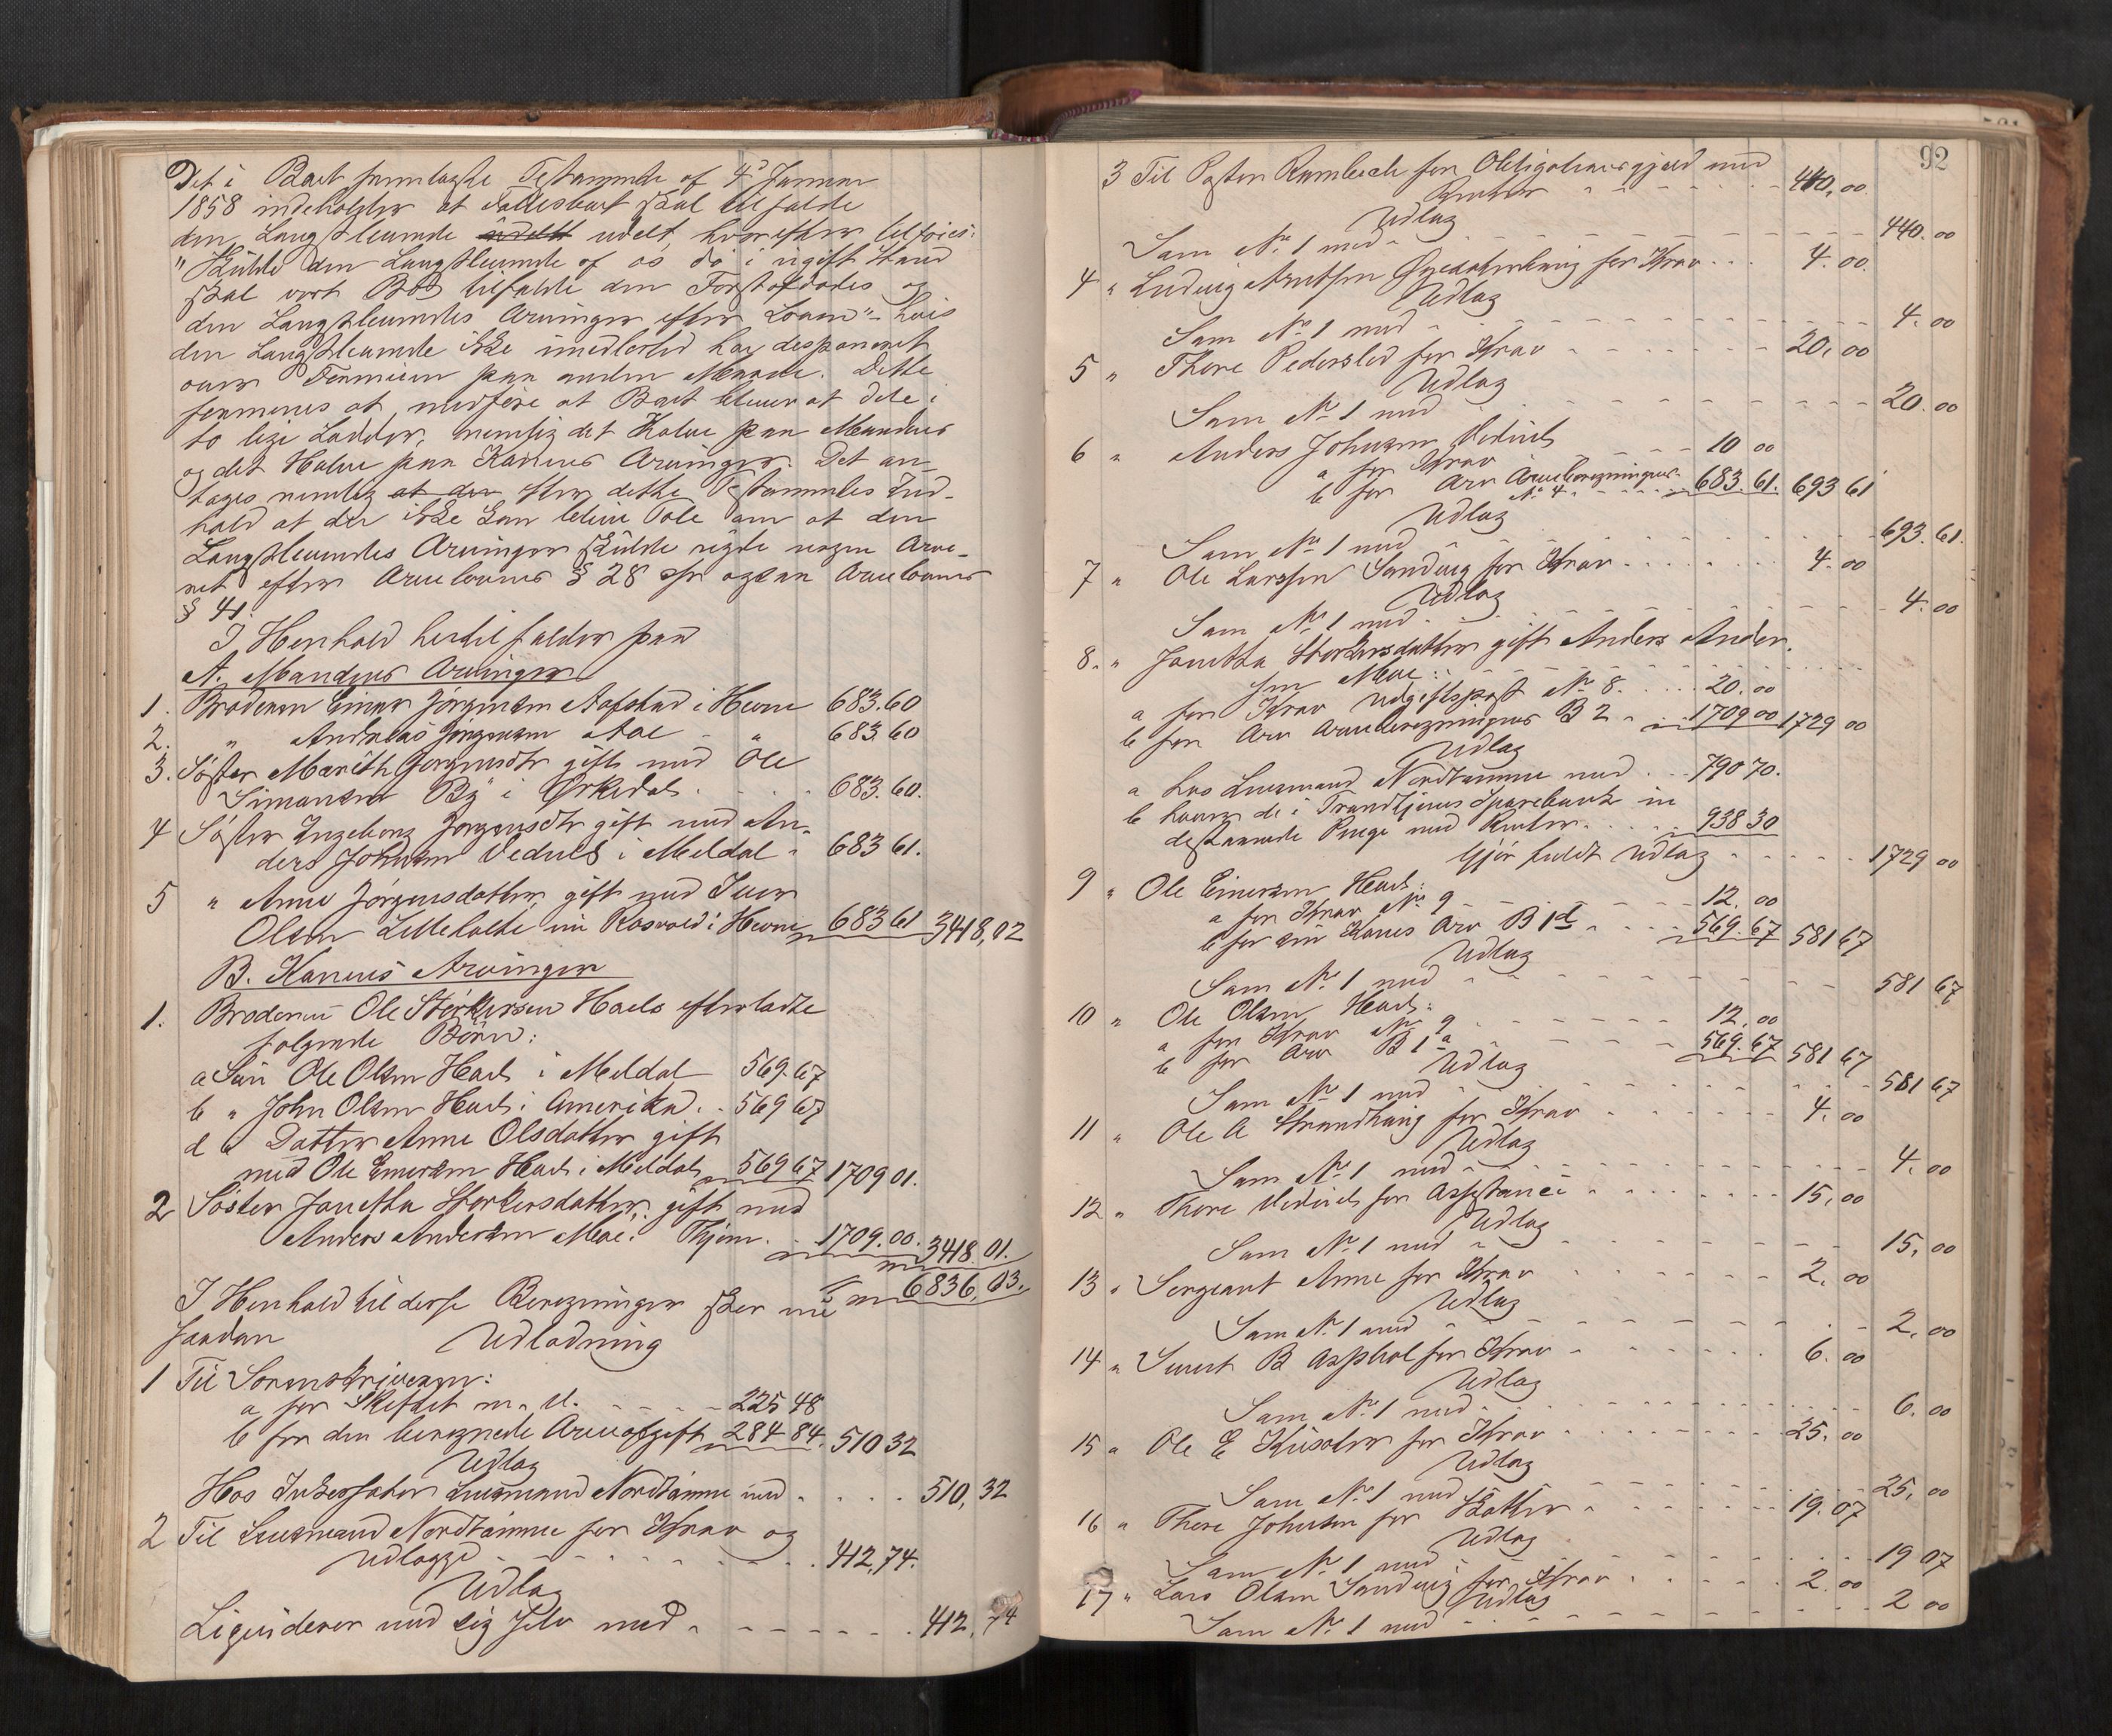 Det i Boet fremlagte Testamente af 4de Januar
1858 indeholder at Fællesboet skal tilfalde
den Længstlevende udelt udelt, hvorefter tilføies:
"Skulde den Længstlevende af os dø i ugift Stand
skal vort Bo tilfalde den Førstafdødes og
den Længstlevendes Arvinger efter Loven" hvis
den Længstlevende ikke imedlertid har desponeret
over Formuen paa anden Maade. Dette
formenes at medføre at Boet bliver at dele i
to lige Lodder, nemlig det Halve paa Mandens
og det Halve paa Konens Arvinger. Det an-
tages nemlig at der efter dette Testamentes Ind-
hold at der ikke kan blive Tale om at den
Længstlevendes Arvinger skulde nyde nogen Arve-
ret efter Arvelovens § 28 cfr ogsaa Arvelovens
§ 41.
I Henhold hertil falder paa
A. Mandens Arvinger
1. Broderen Einar Jørgensen Aafstad i Hevne 683.60
2. " Andreas Jørgensen Aae - " 683.60
3. Søster Marith Jørgensdtr gift med Ole
Simonsen By i Ørkedal . . . 683.60.
4 Søster Ingeborg Jørgensdtr gift med An-
ders Johnsen Veduls i Meldal " 683 61.
5 " Anne Jørgensdatter gift med Iver
Olsen Lilleholte nu Rosvold i Hevne 683 61 3418,02
B. Konens Arvinger
1. Broderen Ole Størkersen Hoels efterladte
følgende Børn:
a Søn Ole Olsen Hoels i Meldal 569.67
b " John Olsen Hoels i Amerika . - 569 67
d " Datter Anne Olsdatter gift
med Ole Einarsen Hoels i Meldal 569 67 1709 01.
2 Søster Jonetta Størkersdatter, gift med
Anders Andersen Moe i Thjem. - 1709.00. 3418.01.
6836,03.
I Henhold til disse Beregninger sker nu
saadan Udlodning
1 Til Sorenskriveren:
a for Skiftet m. v. - - - - 225 48
b for den beregnede Arveafgift 284 84. 510 32
Udlæg
Hos Inkassator Lensmand Nordtømme med . . . . 510,32
2 Til Lensmand Nordtømme for Krav og
Udlægge - - - - - - - . . 412,74.
Udlæg
Liqviderer med sig selv med - - - - - - . 412,74
92
3 Til Pastor Rambech for Obligationsgjæld med
Renter - - - - - - - 440,00.
Udlæg
Sam No 1 med - - - - - - - 440.00
4 " Ludvig Arntsen Gjedahaug for Krav . . . 4.00.
Udlæg
Sam No 1 med - - - - - - - 4.00
5 " Thore Pedersled for Krav - - - - - 20,00
Udlæg
Sam No 1 med - - - - - - - 20.00
6 " Anders Johnsen Veduls
a for Krav - - 10 00
b for Arv Arveberegningens No 4. - - - - 683.61. 693 61
Udlæg
Sam No 1 med - - - - - - - 693.61.
7 " Ole Larsen Sandvig for Krav . . . . . 4.00
Udlæg
Sam No 1 med - - - - - - - 4.00
8. " Jonetta Størkersdatter gift Anders Ander-
sen Moe:
a for Krav Udgiftspost No 8. . . . 20.00
b for Arv Arveberegningens B 2 - . . 1709 00 1729 00
Udlæg
a hos Lensmand Nordtømme med . . - 790 70.
b hvoraf de i Trondhjems Sparebank in
destaaende Penge med Renter. . . . . 938 30
Gjør fuldt Udlæg - - - - - 1729 00
9 " Ole Einarsen Hoels:
a for Krav No 9 - - - - - 12.00
b for sin Kones Arv B 1d . - - - 569.67 581 67
Udlæg
Sam No 1 med - - - - - - - 581 67
10 " Ole Olsen Hoels:
a for Krav No 9 - - - - - 12.00
b for Arv B 1a - - - - - 569.67 581 67
Udlæg
Sam No 1 med - - - - - - - 581 67
11 " Ole A Strandhaug for Krav . . . . . 4.00
Udlæg
Sam No 1 med - - - - - - - 4.00
12 " Thore Veduls for Assistance - . . . . 15,00
Udlæg
Sam No 1 med - - - - - - - 15,00
13 " Sergeant Anne for Krav . . . . . 2,00
Udlæg
Sam No 1 med - - - - - - - 2,00
14 " Sivert B Asphol for Krav - - - - - 6.00
Udlæg
Sam No 1 med - - - - - - - 6.00
15 " Ole E for Krav - - - - - 25.00
Udlæg
Sam No 1 med - - - - - - - 25,00
16 " Thore Johnsen for Skatter - - - - - 19.07
Udlæg
Sam No 1 med - - - - - - - 19 07
17 " Lars Olsen Sandvig for Krav . . . . . 2.00
Udlæg
Sam No 1 med - - - - - - - 2 00